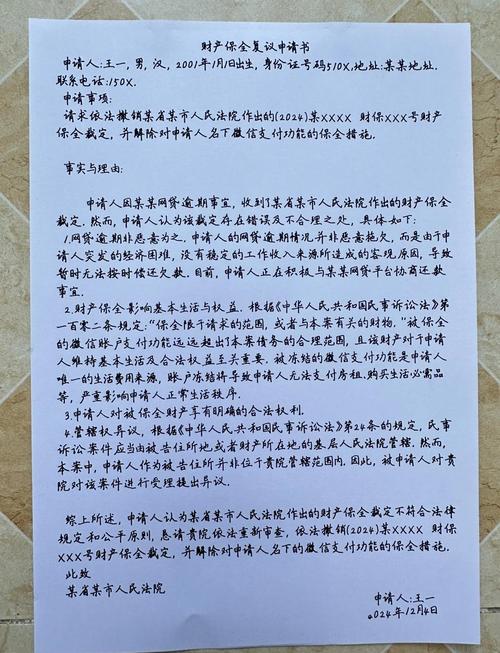 财产保全复议申请书
申请人:王一,男,汉,2001年1月1日出生,身份证号码510X,地址:某某地址.
联系电话:150X.
申请事项:
请求依法撤销某省某市人民法院作出的(2024)某XXXX 财保XXX号财产
保全裁定,并解除对申请人名下微信支付功能的保全措施.
事实与理由:
申请人因某某网贷逾期事宜,收到了某省某市人民法院作出的财产保全
裁定.然而,申请人认为该裁定存在错误及不合理之处,具体如下:
1.网贷逾期非恶意为之.申请人的网贷逾期情况并非恶意拖欠,而是由于申
请人突发的经济困难,没有稳定的工作收入来源所造成的客观原因,导致
暂时无法按时偿还欠款.目前,申请人正在积极与某某网贷平台协商还款
事宜.
2.财产保全影响基本生活与权益.根据《中华人民共和国民事诉讼法》第
一百零二条规定:"保全限于请求的范围,或者与本案有关的财物."被保全
的微信账户支付功能远远超出了本案债务的合理范围,且该财产对于申请
人维持基本生活及合法权益至关重要.被冻结的微信支付功能是申请人
唯一的生活费用来源,账户冻结将导致申请人无法支付房租.购买生活必需品
等,严重影响申请人正常生活秩序.
3.申请人对被保全财产享有明确的合法权利.
4.管辖权异议,根据《中华人民共和国民事诉讼法》第24条的规定,民事
诉讼案件应当由被告住所地或者财产所在地的基层人民法院管辖.然而,
本案中,申请人作为被告住所并非位于贵院管辖范围内.因此,被申请人对贵
院对该案件进行受理提出异议.
综上所述,申请人认为某省某市人民法院作出的财产保全裁定不符合法律
规定和公平原则,恳请贵院依法重新审查,依法撤销(2024)某XXXX 财保
XXX号财产保全裁定,并解除对申请人名下的微信支付功能的保全措施.
此致
某省某市人民法院
申请人:王一
2024年12月4日